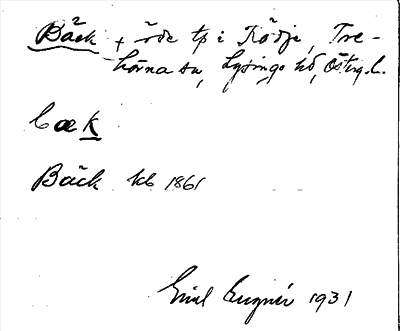 Bäck + öde tp i Rödje, Tre-
hörna sn, Lysings hd, Östrg. l.
bæk
Bäck kb 1861
Emil 1931